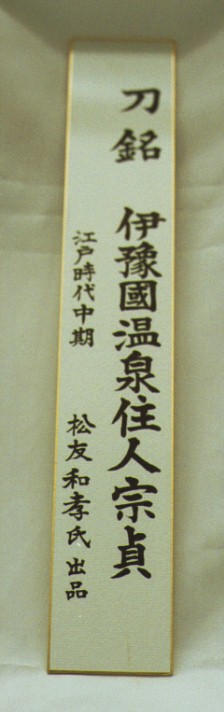 刀銘 伊豫國温泉住人宗貞
江戸時代中期 松友和孝氏出品